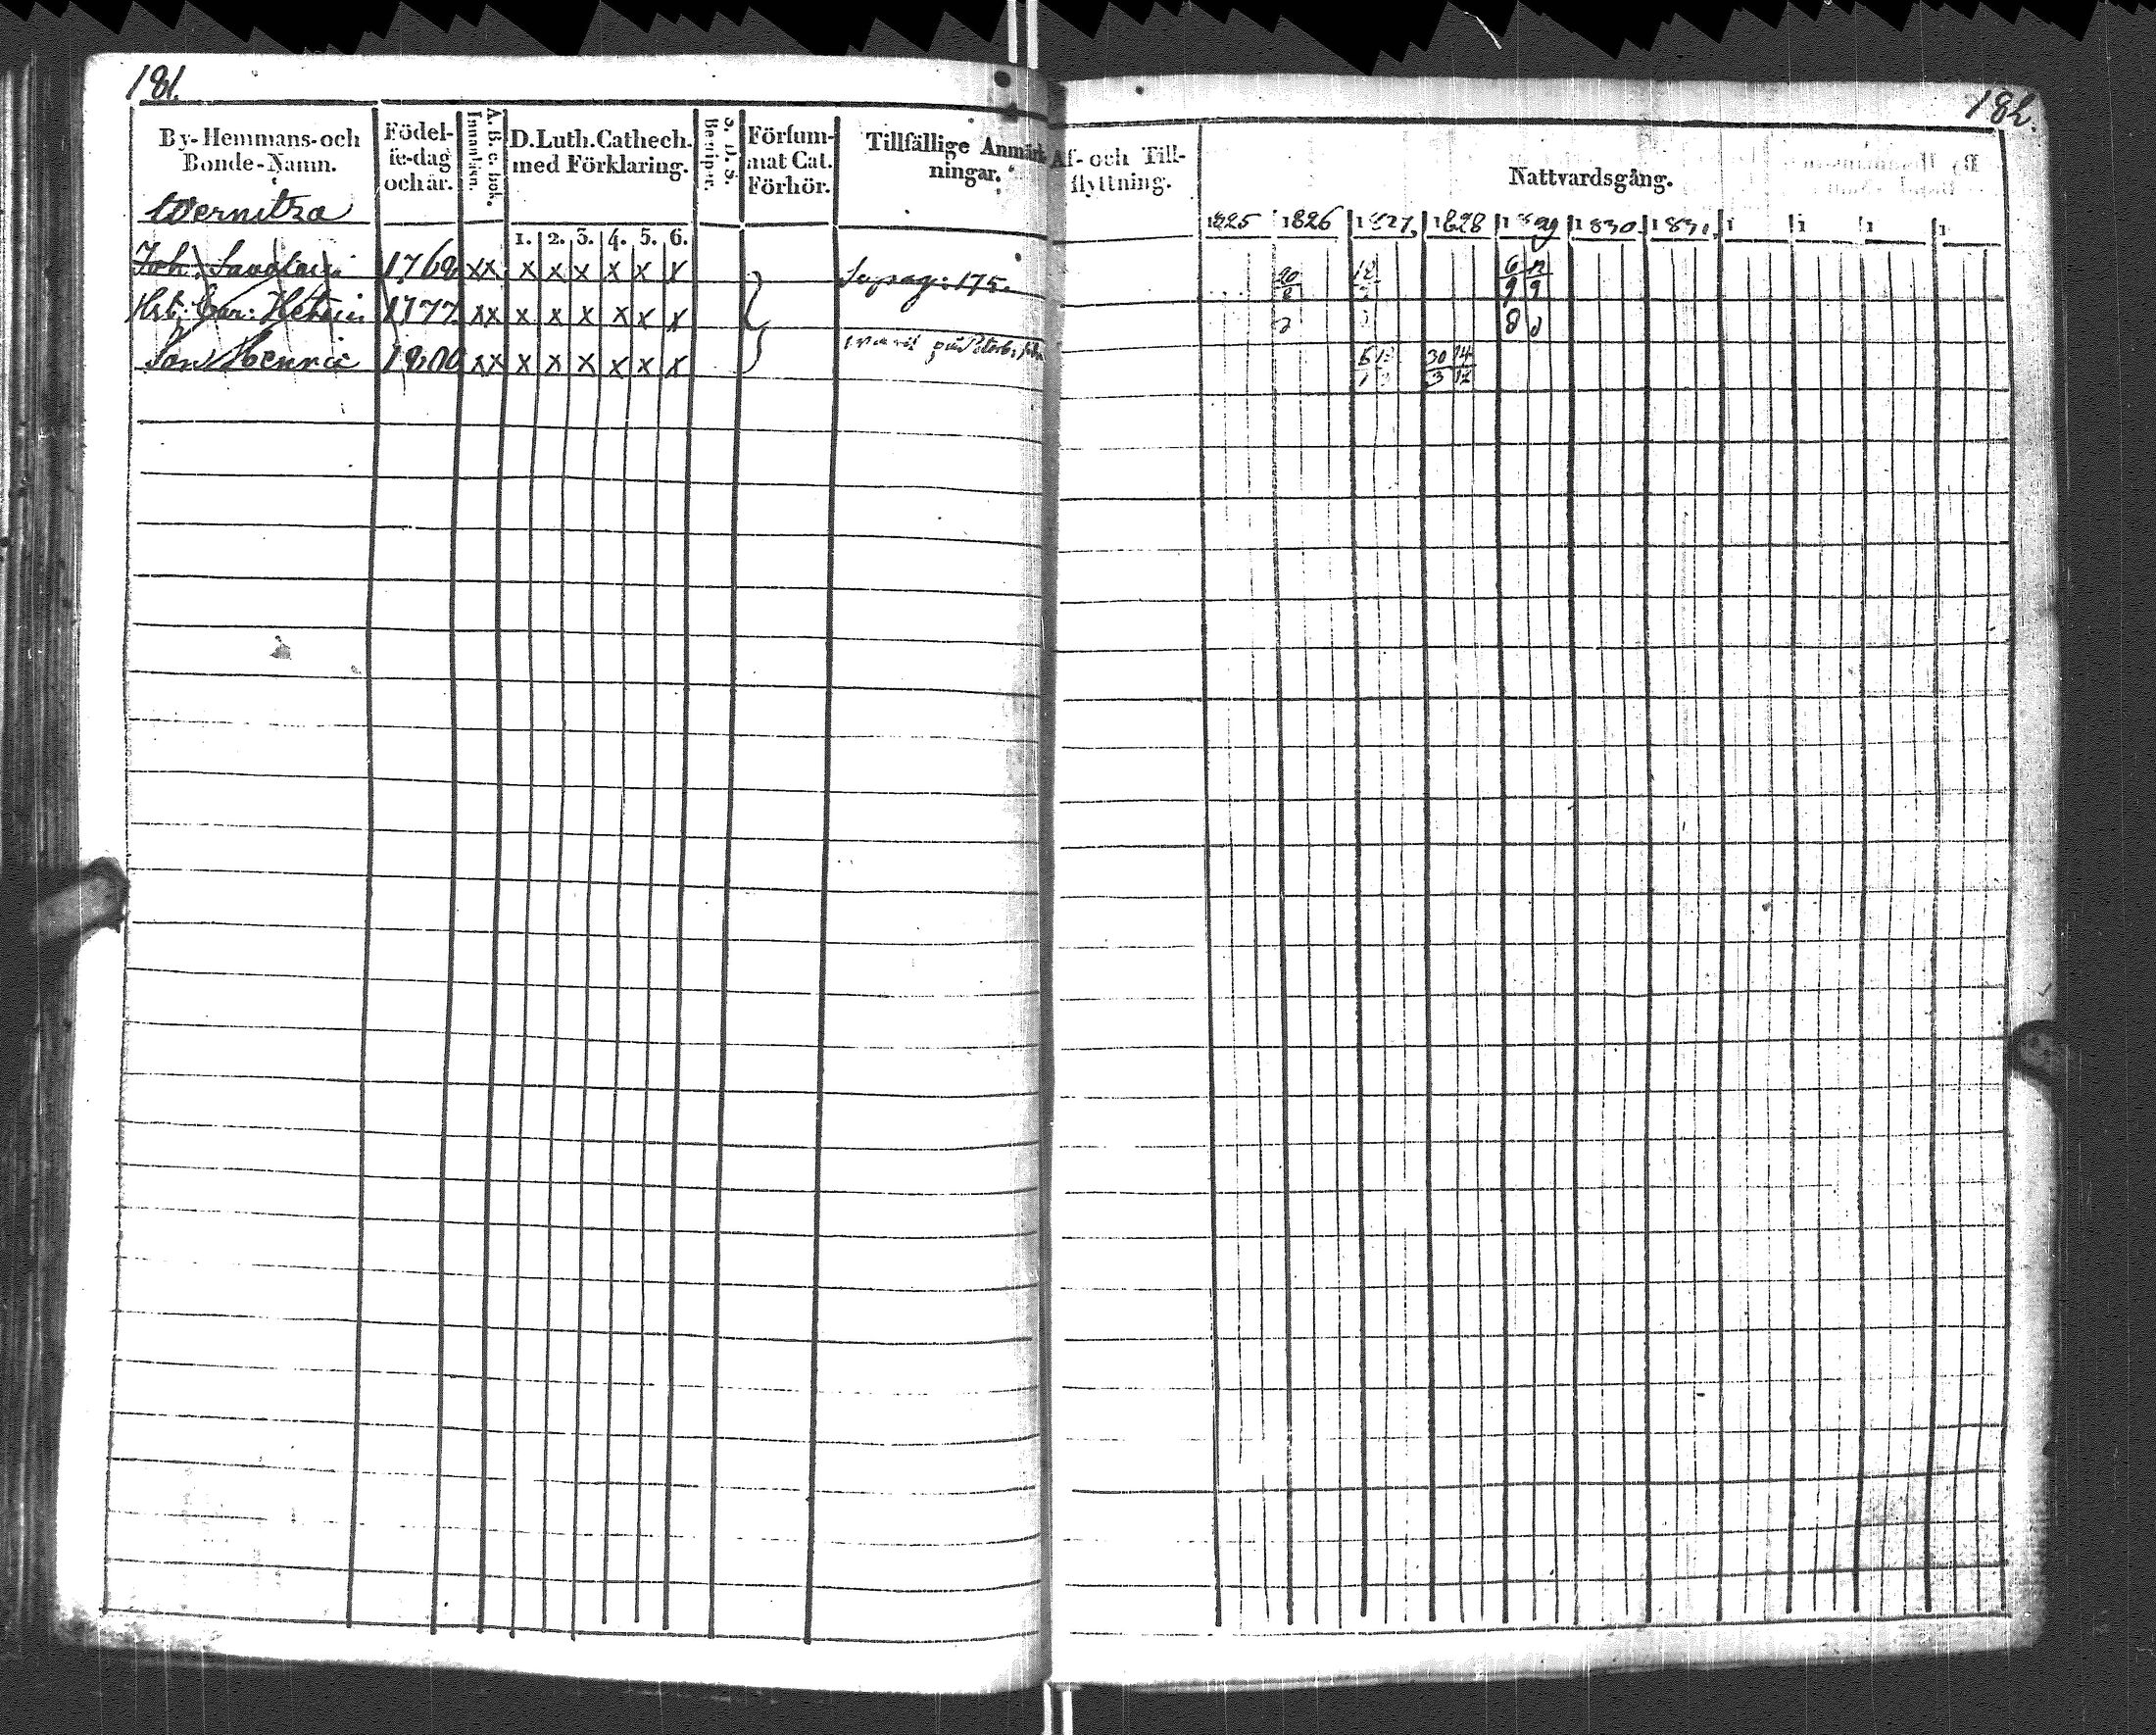 181.
By-Hemmans-och
Bonde-Namn.
Födel-
se-dag
och år.
A. B. C. bok.
Innanläsn.
D. Luth. Cathech.
med Förklaring.
Försum-
mat Cat.
Förhör.
Tillfällige Anmärk-
ningar.
Wernitza
1. 2. 3. 4. 5. 6.
Joh: 1768 xx x x x x x x
pag: 175.
Hst: Car: 1777 xx x x x x x x
Son Henric 1800 xx x x x x x x
182.
Af- och Till-
flyttning.
Nattvardsgång.
1825 1826 1827. 1828 1829 1830. 1831. 1 1 1 1
20 12 6 12
9 9
8
30 14
3 12